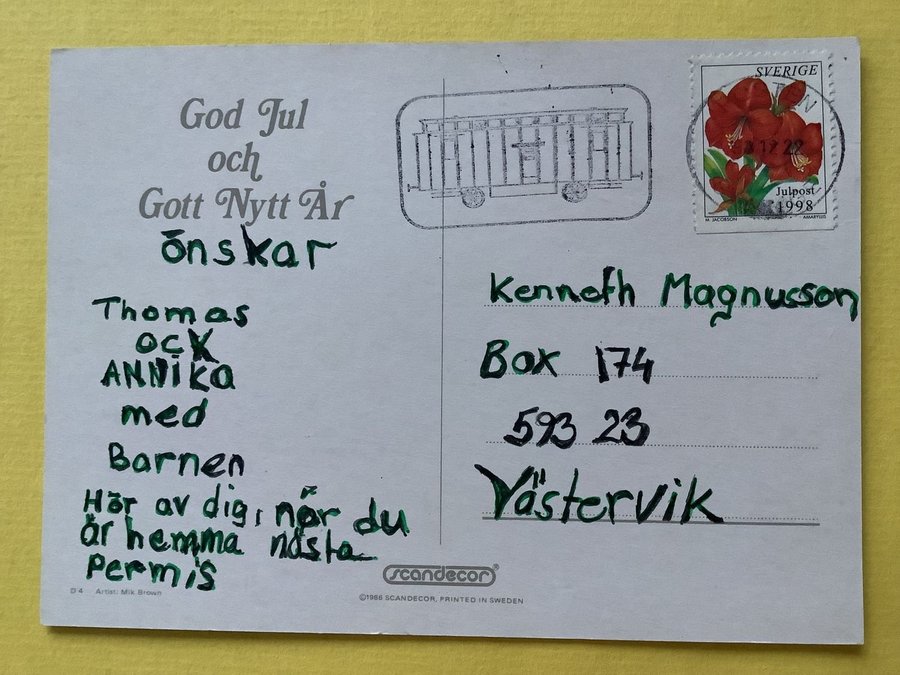 God Jul
och
Gott Nytt År
önskar
Thomas
ock
ANNika
med
Barnen
Hör av dig, når du
är hemma nästa
Permis
D 4 Artist: Mik Brown
scandecor®
©1986 SCANDECOR, PRINTED IN SWEDEN
SVERIGE
12 22
Julpost
1998
M. JACOBSON AMARYLLIS
Kenneth Magnusson
Box 174
593 23
Västervik